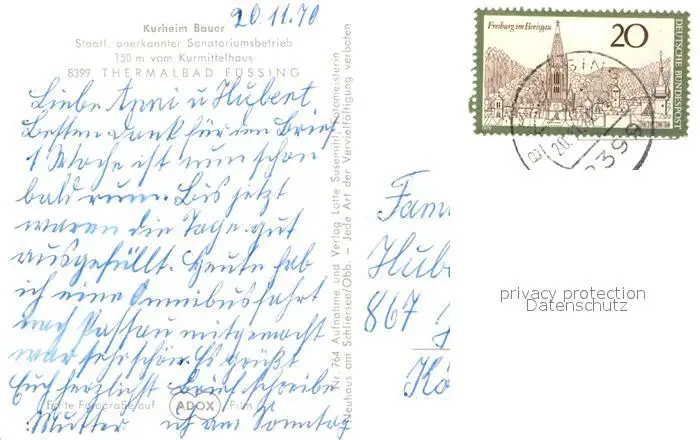 20.11.70
Kurheim Bauer
Staatl. anerkannter Sanatoriumsbetrieb
150 m vom Kurmittelhaus
8399 THERMALBAD FÜSSING
Liebe Anni u Hubert
Besten Dank für den Brief
1 Woche ist nun schon
bald rum. Bis jetzt
waren die Tage gut
ausgefüllt. Heute hab
ich eine Omnibusfahrt
nach Passau mitgemacht
war sehr schön. Es grüßt
Euch herzlichst Brief schreibe
Mutter. ich am Sonntag
Echte Fotografie auf ADOX Film
Nr. 764 Aufnahme und Verlag Lotte Sesemihl, Fotomeisterin
Neuhaus am Schliersee/Obb. — Jede Art der Vervielfältigung verboten
Freiburg im Breisgau
20
DEUTSCHE BUNDESPOST
20.11.
8399
Fam
Hub
867
Kö
privacy protection
Datenschutz